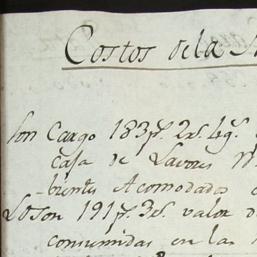 Costos de la
Son Cargo 183p.s 2r.s 4g.s
casa de Lavores
bientes Acomodados
Lo son 191p.s 3r.s valor d
consumidas en las